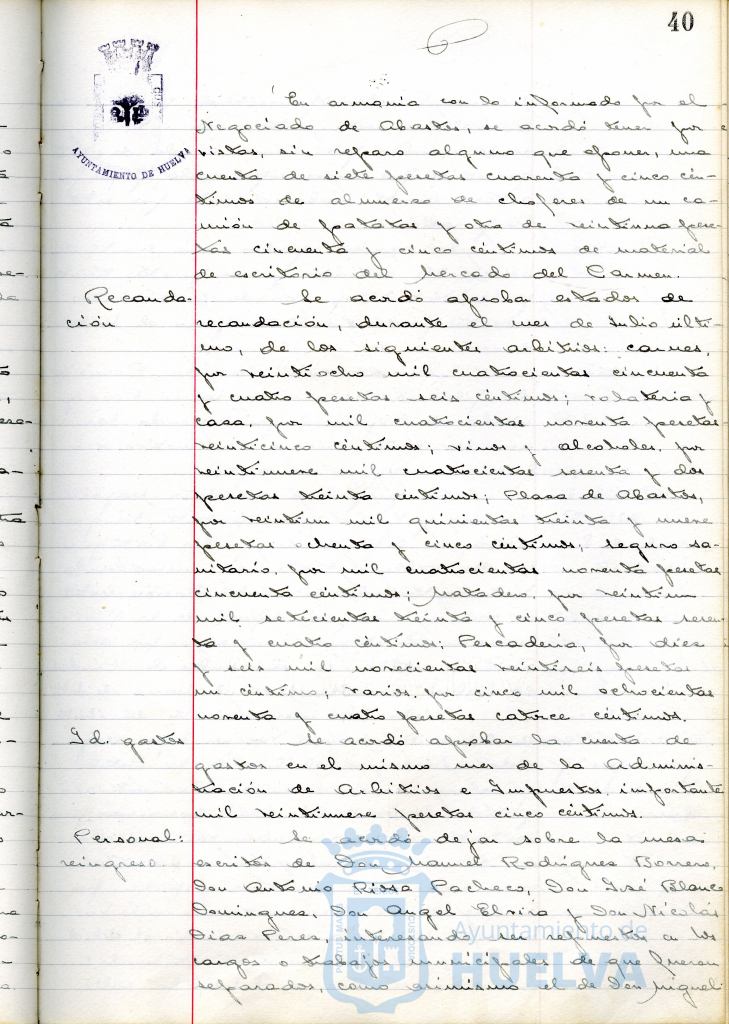 40
AYUNTAMIENTO DE HUELVA
En armonía con lo informado por el
Negociado de Abastos, se acordó tener por
vistas, sin reparo alguno que oponer, una
cuenta de siete pesetas cuarenta y cinco cén-
timos de almuerzo de choferes de un ca-
mión de patatas y otra de veintiuna pese-
tas cincuenta y cinco céntimos de material
de escritorio del Mercado del Carmen.
Recauda-
ción
Se acordó aprobar estados de
recaudación, durante el mes de Julio últi-
mo, de los siguientes arbitrios: carnes,
por veintiocho mil cuatrocientas cincuenta
y cuatro pesetas seis céntimos; volatería y
caza, por mil cuatrocientas noventa pesetas
veinticinco céntimos; vinos y alcoholes, por
veintinueve mil cuatrocientas sesenta y dos
pesetas treinta céntimos; Plaza de Abastos,
por veintiun mil quinientas treinta y nueve
pesetas ochenta y cinco céntimos; seguro sa-
nitario, por mil cuatrocientas noventa pesetas
cincuenta céntimos; Matadero, por veintiun
mil setecientas treinta y cinco pesetas seten-
ta y cuatro céntimos; Pescadería, por diez
y seis mil novecientas veintiseis pesetas
un céntimo; varios, por cinco mil ochocientas
noventa y cuatro pesetas catorce céntimos.
Id. gastos
Se acordó aprobar la cuenta de
gastos en el mismo mes de la Adminis-
tración de Arbitrios e Impuestos, importante
mil veintinueve pesetas cinco céntimos.
Personal:
reingreso.
Se acordó dejar sobre la mesa
escritos de Don Manuel Rodríguez Borrero,
Don Antonio Rossa Pacheco, Don José Blanco
Domínguez, Don Angel Elvira y Don Nicolás
Díaz Perez, interesando ser repuestos en los
cargos o trabajos municipales de que fueron
separados, como asimismo el de Don Miguel
Ayuntamiento de
HUELVA